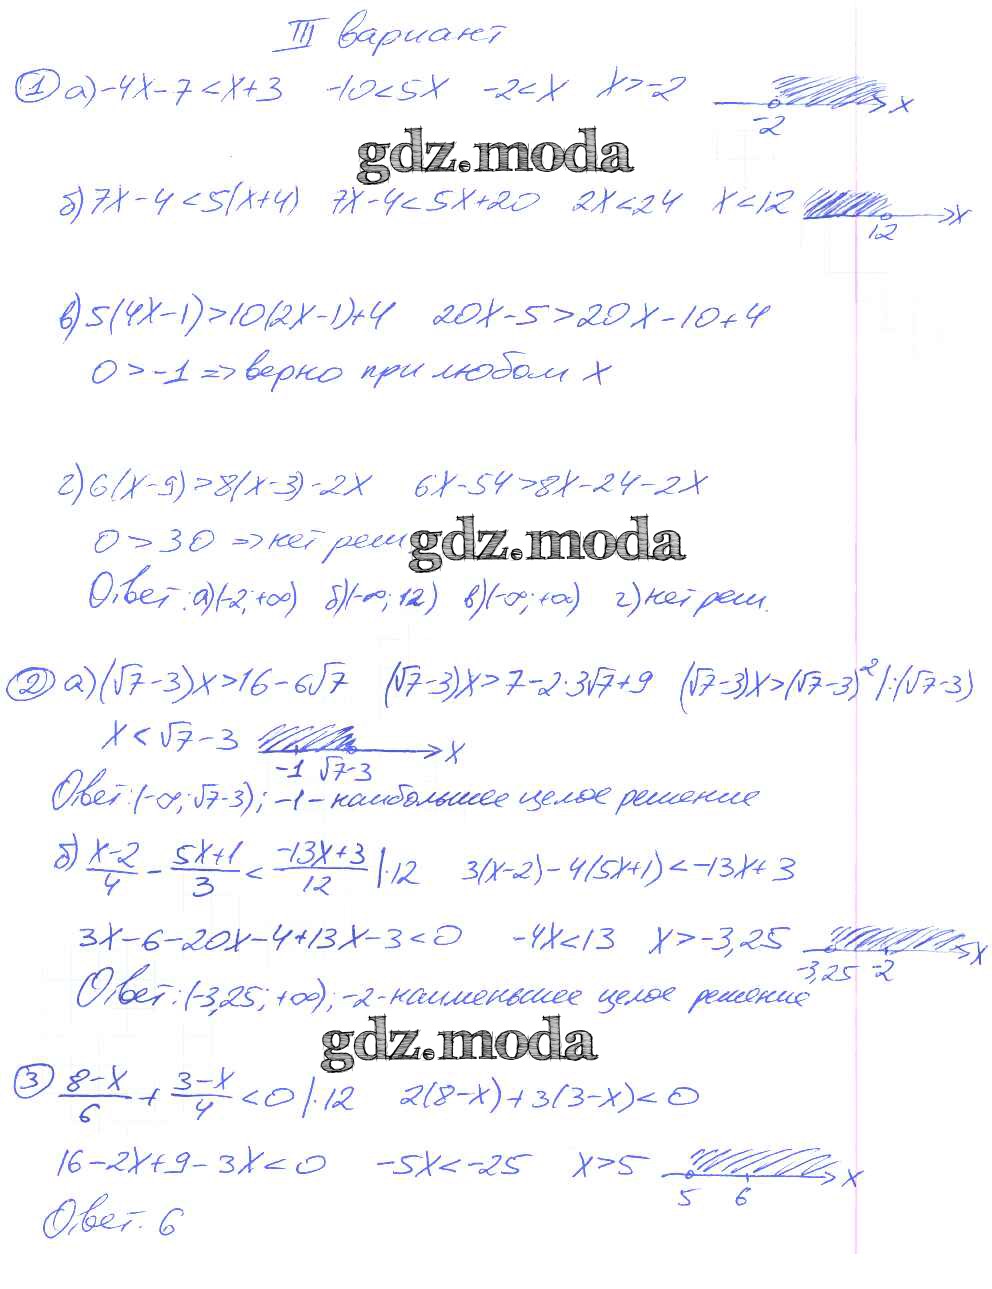 III вариант
1 а) -4x-7<x+3 -10<5x -2<x x>-2 -2 x
gdz.moda
б) 7x-4<5(x+4) 7x-4<5x+20 2x<24 x<12 12 x
в) 5(4x-1)>10(2x-1)+4 20x-5>20x-10+4
0>-1 => верно при любом x
г) 6(x-9)>8(x-3)-2x 6x-54>8x-24-2x
0>30 => нет реш
gdz.moda
Ответ: а)(-2;+∞) б)(-∞;12) в)(-∞;+∞) г) нет реш.
2 а) (√7-3)x>16-6√7 (√7-3)x>7-2·3√7+9 (√7-3)x>(√7-3)² |:(√7-3)
x<√7-3 -1 √7-3 x
Ответ: (-∞;√7-3); -1 - наибольшее целое решение
б) (x-2)/4 - (5x+1)/3 < (-13x+3)/12 |·12 3(x-2)-4(5x+1)<-13x+3
3x-6-20x-4+13x-3<0 -4x<13 x>-3,25 -3,25 -2 x
Ответ: (-3,25;+∞); -2 - наименьшее целое решение
gdz.moda
3 (8-x)/6 + (3-x)/4 <0 |·12 2(8-x)+3(3-x)<0
16-2x+9-3x<0 -5x<-25 x>5 5 6 x
Ответ. 6